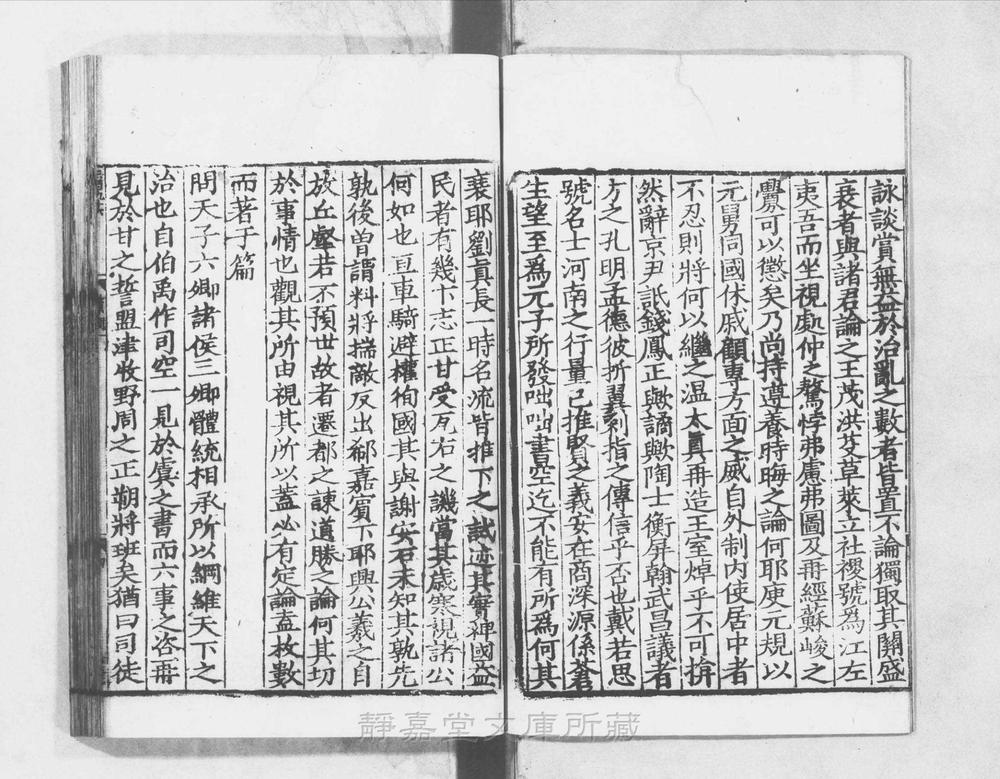 詠談賞無益於治亂之數者皆置不論獨取其關盛
衰者與諸君論之王茂洪艾草萊立社稷號為江左
夷吾而坐視處仲之驁悖弗慮弗圖及再經蘇峻之
釁可以懲矣乃尚持遵養時晦之論何耶庾元規以
元舅同國休戚顧專方面之威自外制内使居中者
不忍則將何以繼之温太真再造王室焯乎不可揜
然辭京尹詆錢鳳正歟譎歟陶士衡屏翰武昌議者
方之孔明孟德彼折翼剌指之傳信乎否也戴若思
號名士河南之行量已推賢之義安在商深源係蒼
生望至為元子所發咄咄書空迄不能有所為何其
衰耶劉真長一時名流皆推下之試迹其實裨國益
民者有幾卞志正甘受瓦石之譏當其歲寒視諸公
何如也亘車騎避權徇國其與謝安石未知其孰先
孰後曽謂料將揣敵反出郗嘉賓下耶興公羲之自
放丘壑若不預世故者遷都之諫道勝之論何其切
於事情也觀其所由視其所以蓋必有定論盍枚數
而著于篇
問天子六卿諸侯三卿體統相承所以綱維天下之
治也自伯禹作司空一見於虞之書而六事之咨再
見於甘之誓盟津牧野周之正朔將班矣猶曰司徒
靜嘉堂文庫所藏